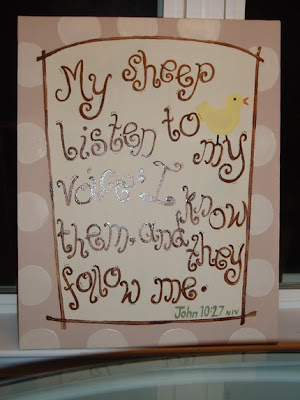 My sheep
listen to my
voice; I know
them, and they
follow me.
John 10:27 NIV